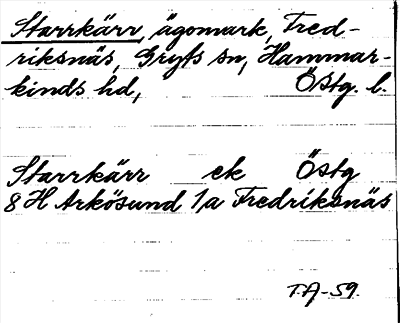 Starrkärr, ägomark, Fred-
riksnäs, Gryts sn, Hammar-
kinds hd, Östg. l.
Starrkärr ek Östg
8 H Arkösund 1/a Fredriksnäs
T.A-59.